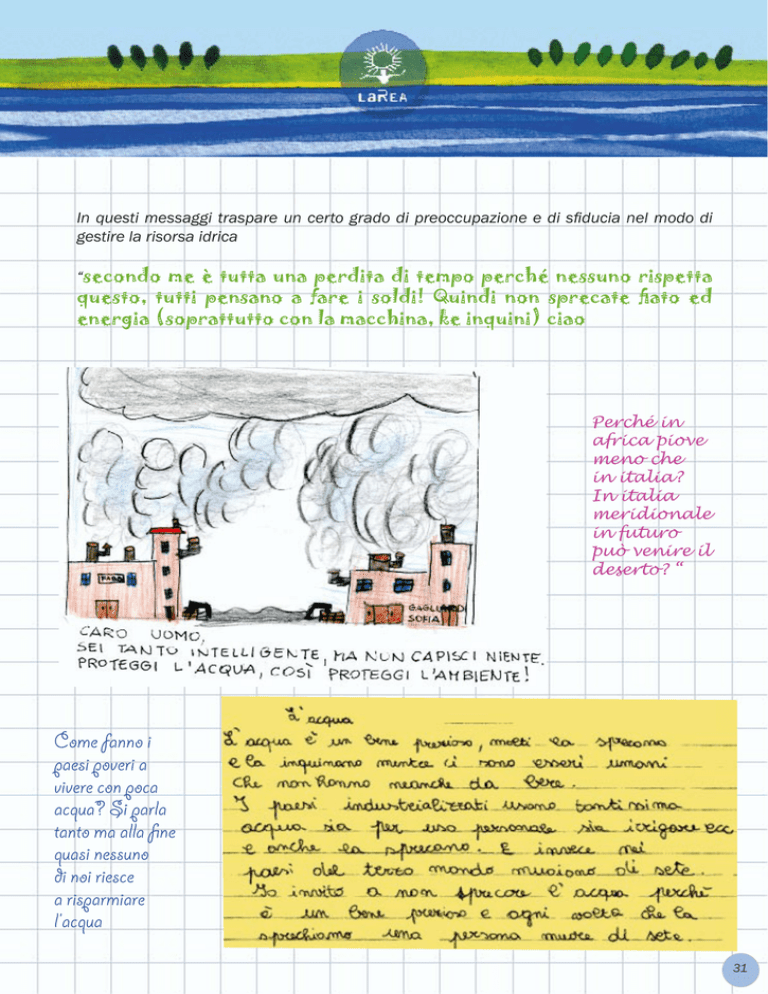 LaREA
In questi messaggi traspare un certo grado di preoccupazione e di sfiducia nel modo di
gestire la risorsa idrica
“secondo me è tutta una perdita di tempo perché nessuno rispetta
questo, tutti pensano a fare i soldi! Quindi non sprecate fiato ed
energia (soprattutto con la macchina, ke inquini) ciao
Perché in
africa piove
meno che
in italia?
In italia
meridionale
in futuro
può venire il
deserto? “
GAGLIARDI
SOFIA
CARO UOMO,
SEI TANTO INTELLIGENTE, MA NON CAPISCI NIENTE.
PROTEGGI L'ACQUA, COSÌ PROTEGGI L'AMBIENTE!
Come fanno i
paesi poveri a
vivere con poca
acqua? Si parla
tanto ma alla fine
quasi nessuno
di noi riesce
a risparmiare
l'acqua
L'acqua
L'acqua è un bene prezioso, molti la sprecano
e la inquinano mentre ci sono esseri umani
che non hanno neanche da bere.
I paesi industrializzati usano tantissima
acqua sia per uso personale sia irrigare ecc
e anche la sprecano. E invece nei
paesi del terzo mondo muoiono di sete.
Io invito a non sprecare l'acqua perchè
è un bene prezioso e ogni volta che la
sprechiamo una persona muore di sete.
31